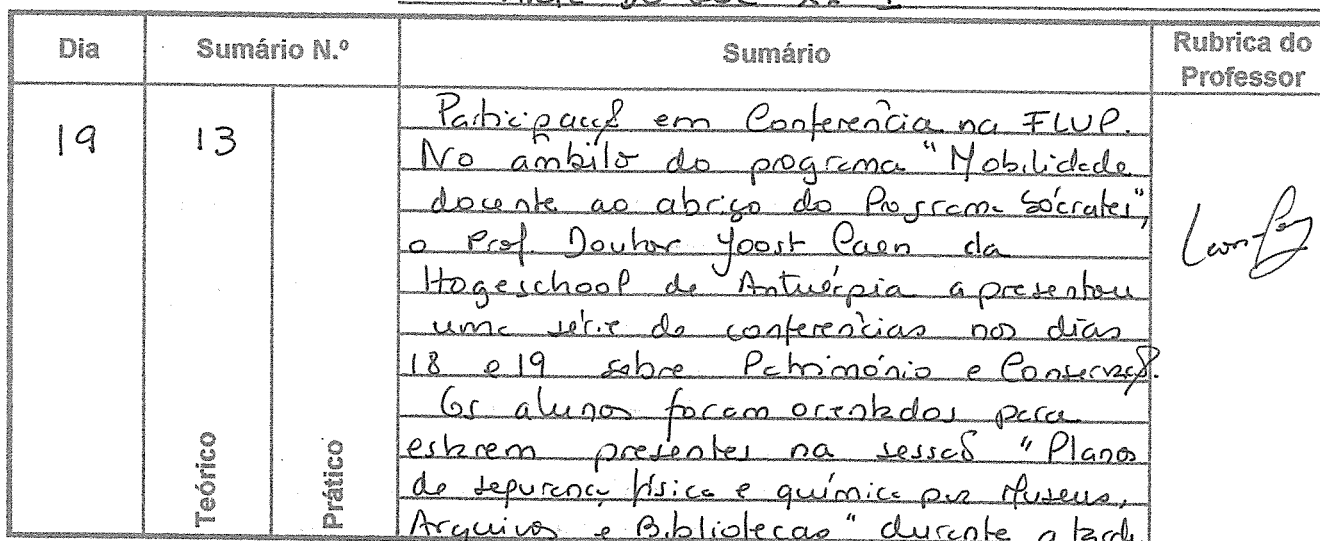 Dia Sumário N.º Sumário Rubrica do Professor
19 13
Teórico Prático
Participação em Conferência na FLUP.
No âmbito do programa "Mobilidade
docente ao abrigo do Programa Sócrates",
o Prof. Doutor Joost Caen da
Hogeschool de Antuérpia apresentou
uma série de conferências nos dias
18 e 19 sobre Património e Conservação.
Os alunos foram orientados para
estarem presentes na sessão "Planos
de segurança física e química para Museus,
Arquivos e Bibliotecas" durante a tarde.